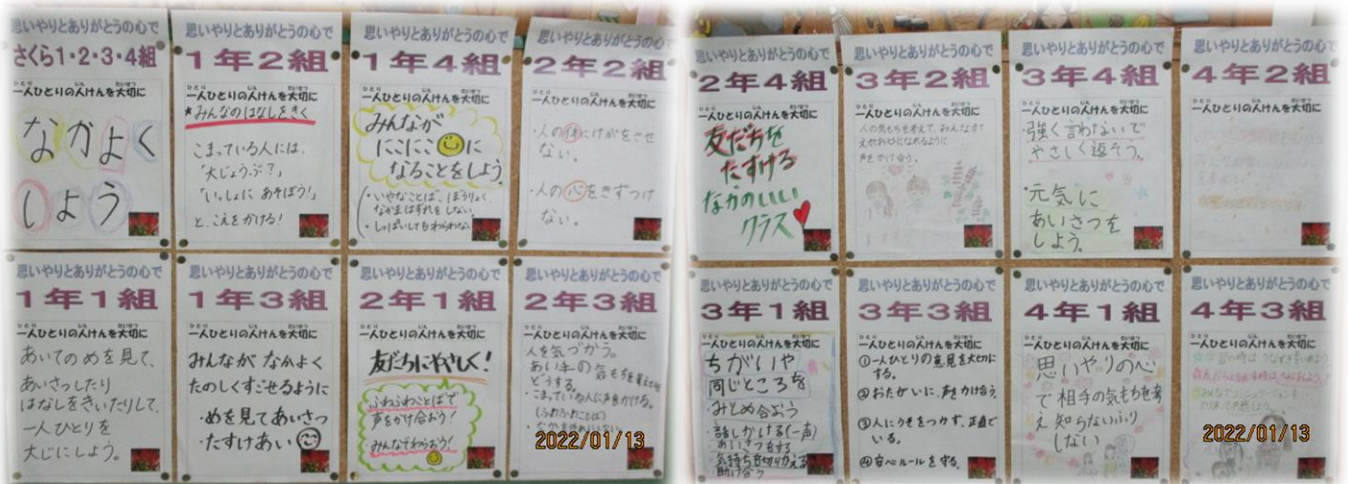 思いやりとありがとうの心で
さくら1・2・3・4組
一人ひとりの人けんを大切に
なかよく
しよう
思いやりとありがとうの心で
1年2組
一人ひとりの人けんを大切に
★みんなのはなしをきく
こまっている人には、
「大じょうぶ?」
「いっしょに あそぼう!」
と、こえをかける!
思いやりとありがとうの心で
1年4組
一人ひとりの人けんを大切に
みんなが
にこにこ に
なることをしよう
・いやなことば、ぼうりょく、
なかまはずれをしない。
・しっぱいしてもわらわない
思いやりとありがとうの心で
2年2組
一人ひとりの人けんを大切に
・人の体にけがをさせ
ない。
・人の心をきずつけ
ない。
思いやりとありがとうの心で
1年1組
一人ひとりの人けんを大切に
あいての めを見て、
あいさつしたり
はなしをきいたりして、
一人ひとりを
大じにしよう。
思いやりとありがとうの心で
1年3組
一人ひとりの人けんを大切に
みんなが なかよく
たのしくすごせるように
・めを見てあいさつ
・たすけあい
思いやりとありがとうの心で
2年1組
一人ひとりの人けんを大切に
友だちにやさしく!
ふわふわことばで
声をかけ合おう!
みんなでわらおう!
思いやりとありがとうの心で
2年3組
一人ひとりの人けんを大切に
人を気づかう。
あい手の気もちを考えて
どうする。
・こまっている人に声をかける。
(ふわふわことば)
2022/01/13
思いやりとありがとうの心で
2年4組
一人ひとりの人けんを大切に
友だちを
たすける
なかのいい
クラス
思いやりとありがとうの心で
3年2組
一人ひとりの人けんを大切に
人の気もちを考えて、みんなが
えがおになれるように
声をかけ合う。
思いやりとありがとうの心で
3年4組
一人ひとりの人けんを大切に
・強く言わないで
やさしく返そう。
・元気に
あいさつを
しよう。
思いやりとありがとうの心で
4年2組
一人ひとりの人けんを大切に
思いやりとありがとうの心で
3年1組
一人ひとりの人けんを大切に
ちがいや
同じところを
みとめ合おう
話しかける(一声)
あいさつをする
気持ちを切りかえる
助け合う
思いやりとありがとうの心で
3年3組
一人ひとりの人けんを大切に
①一人ひとりの意見を大切に
する。
②おたがいに、声をかけ合う。
③人にうそをつかず、正直で
いる。
④安心ルールを守る。
思いやりとありがとうの心で
4年1組
一人ひとりの人けんを大切に
思いやりの心
で相手の気もちを考
え知らないふり
しない
思いやりとありがとうの心で
4年3組
一人ひとりの人けんを大切に
2022/01/13